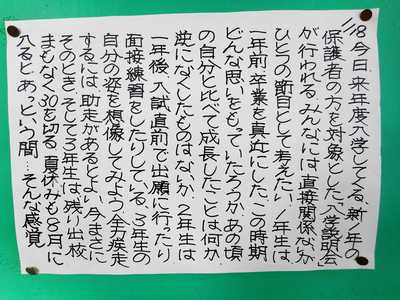 1/18 今日、来年度入学してくる、新1年の
保護者の方を対象とした「入学説明会」
が行われる。みんなには直接関係ないが
ひとつの節目として考えたい。1年生は
一年前、卒業を真近にしたこの時期
どんな思いをもっていたろうか。あの頃
の自分と比べて成長したことは何か
逆になくしたものはないか。2年生は
一年後、入試直前で出願に行ったり
面接練習をしたりしている、3年生の
自分の姿を想像してみよう。全力疾走
するには、助走があるとよい。今まさに
そのとき。そして3年生は残り出校
まもなく30を切る。夏休みも8月に
入るとあっという間…そんな感覚